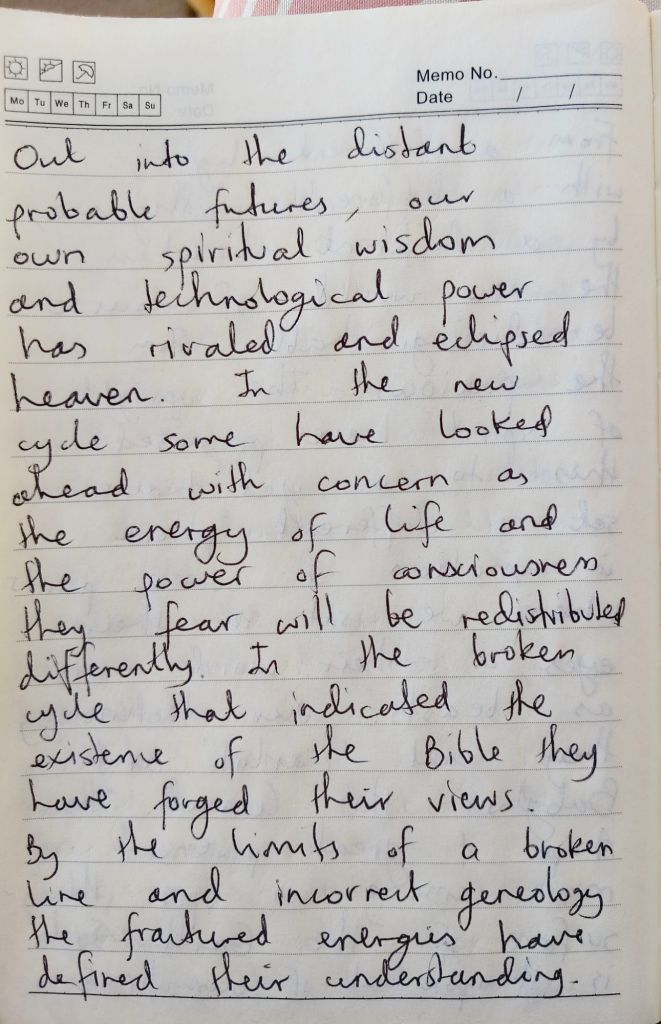 Memo No.
Mo Tu We Th Fr Sa Su
Date / /
Out into the distant
probable futures, our
own spiritual wisdom
and technological power
has rivaled and eclipsed
heaven. In the new
cycle some have looked
ahead with concern as
the energy of life and
the power of consciousness
they fear will be redistributed
differently. In the broken
cycle that indicated the
existence of the Bible they
have forged their views.
By the limits of a broken
line and incorrect geneology
the fractured energies have
defined their understanding.